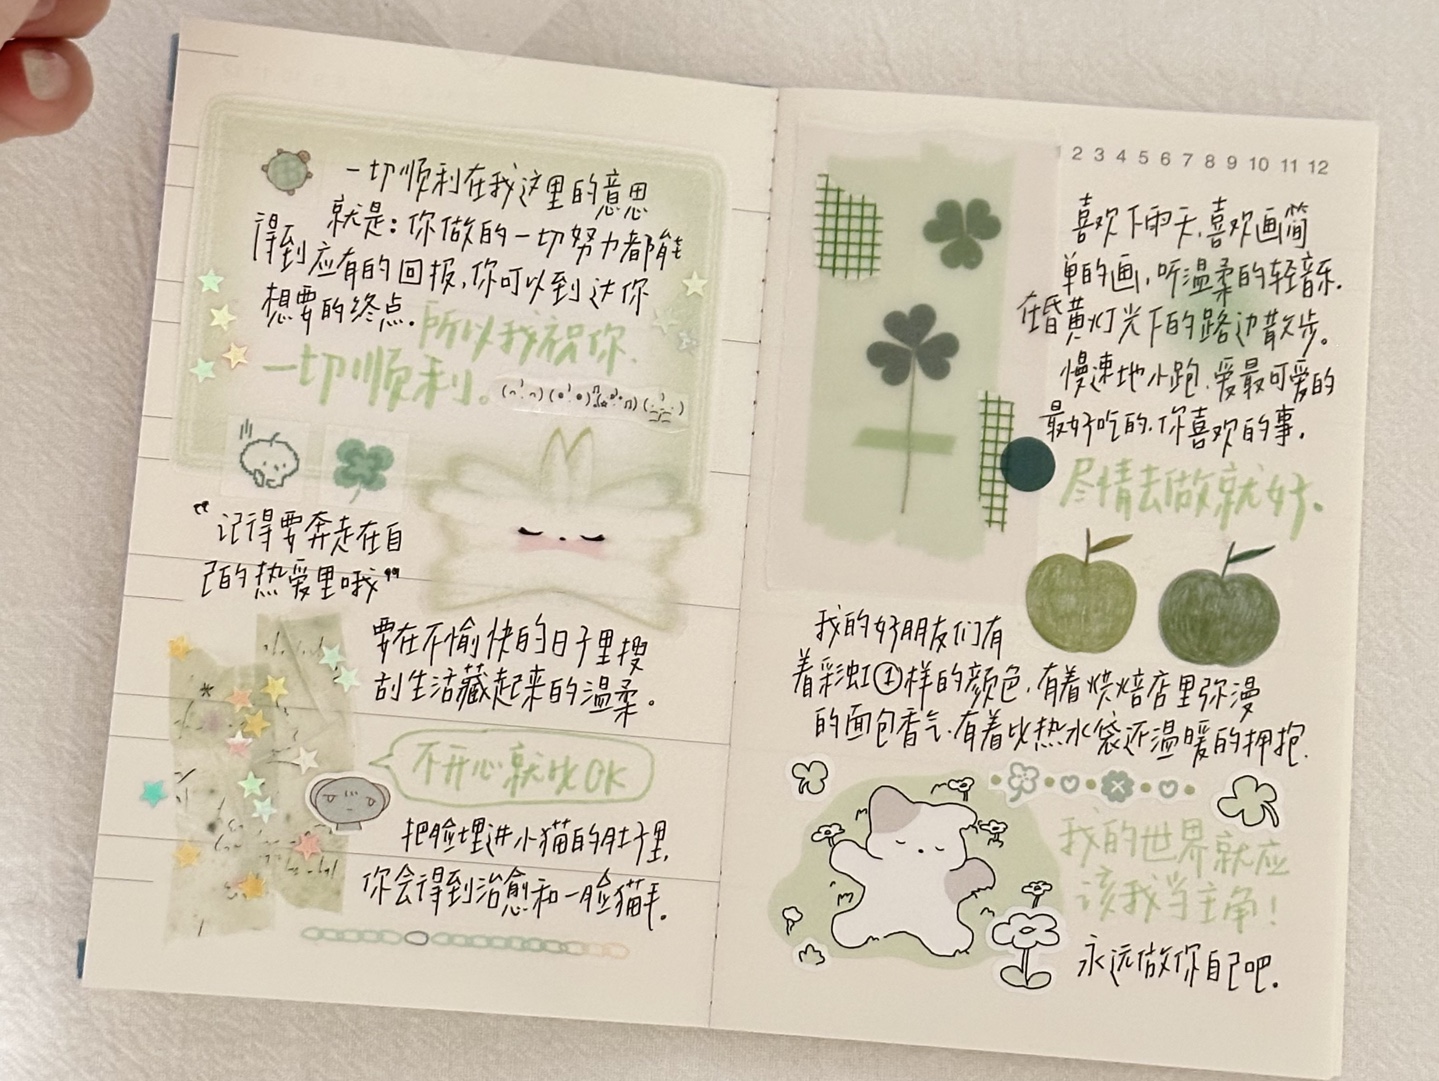 一切顺利在我这里的意思
就是：你做的一切努力都能
得到应有的回报，你可以到达你
想要的终点.
所以我祝你
一切顺利。
“记得要奔走在自
己的热爱里哦”
要在不愉快的日子里搜
刮生活藏起来的温柔。
不开心就比OK
把脸埋进小猫的肚子里，
你会得到治愈和一脸猫毛。
1 2 3 4 5 6 7 8 9 10 11 12
喜欢下雨天，喜欢画简
单的画，听温柔的轻音乐.
在昏黄灯光下的路边散步。
慢速地小跑，爱最可爱的
最好吃的，你喜欢的事.
尽情去做就好.
我的好朋友们有
着彩虹①样的颜色，有着烘焙店里弥漫
的面包香气，有着比热水袋还温暖的拥抱.
我的世界就应
该我当主角！
永远做你自己吧.